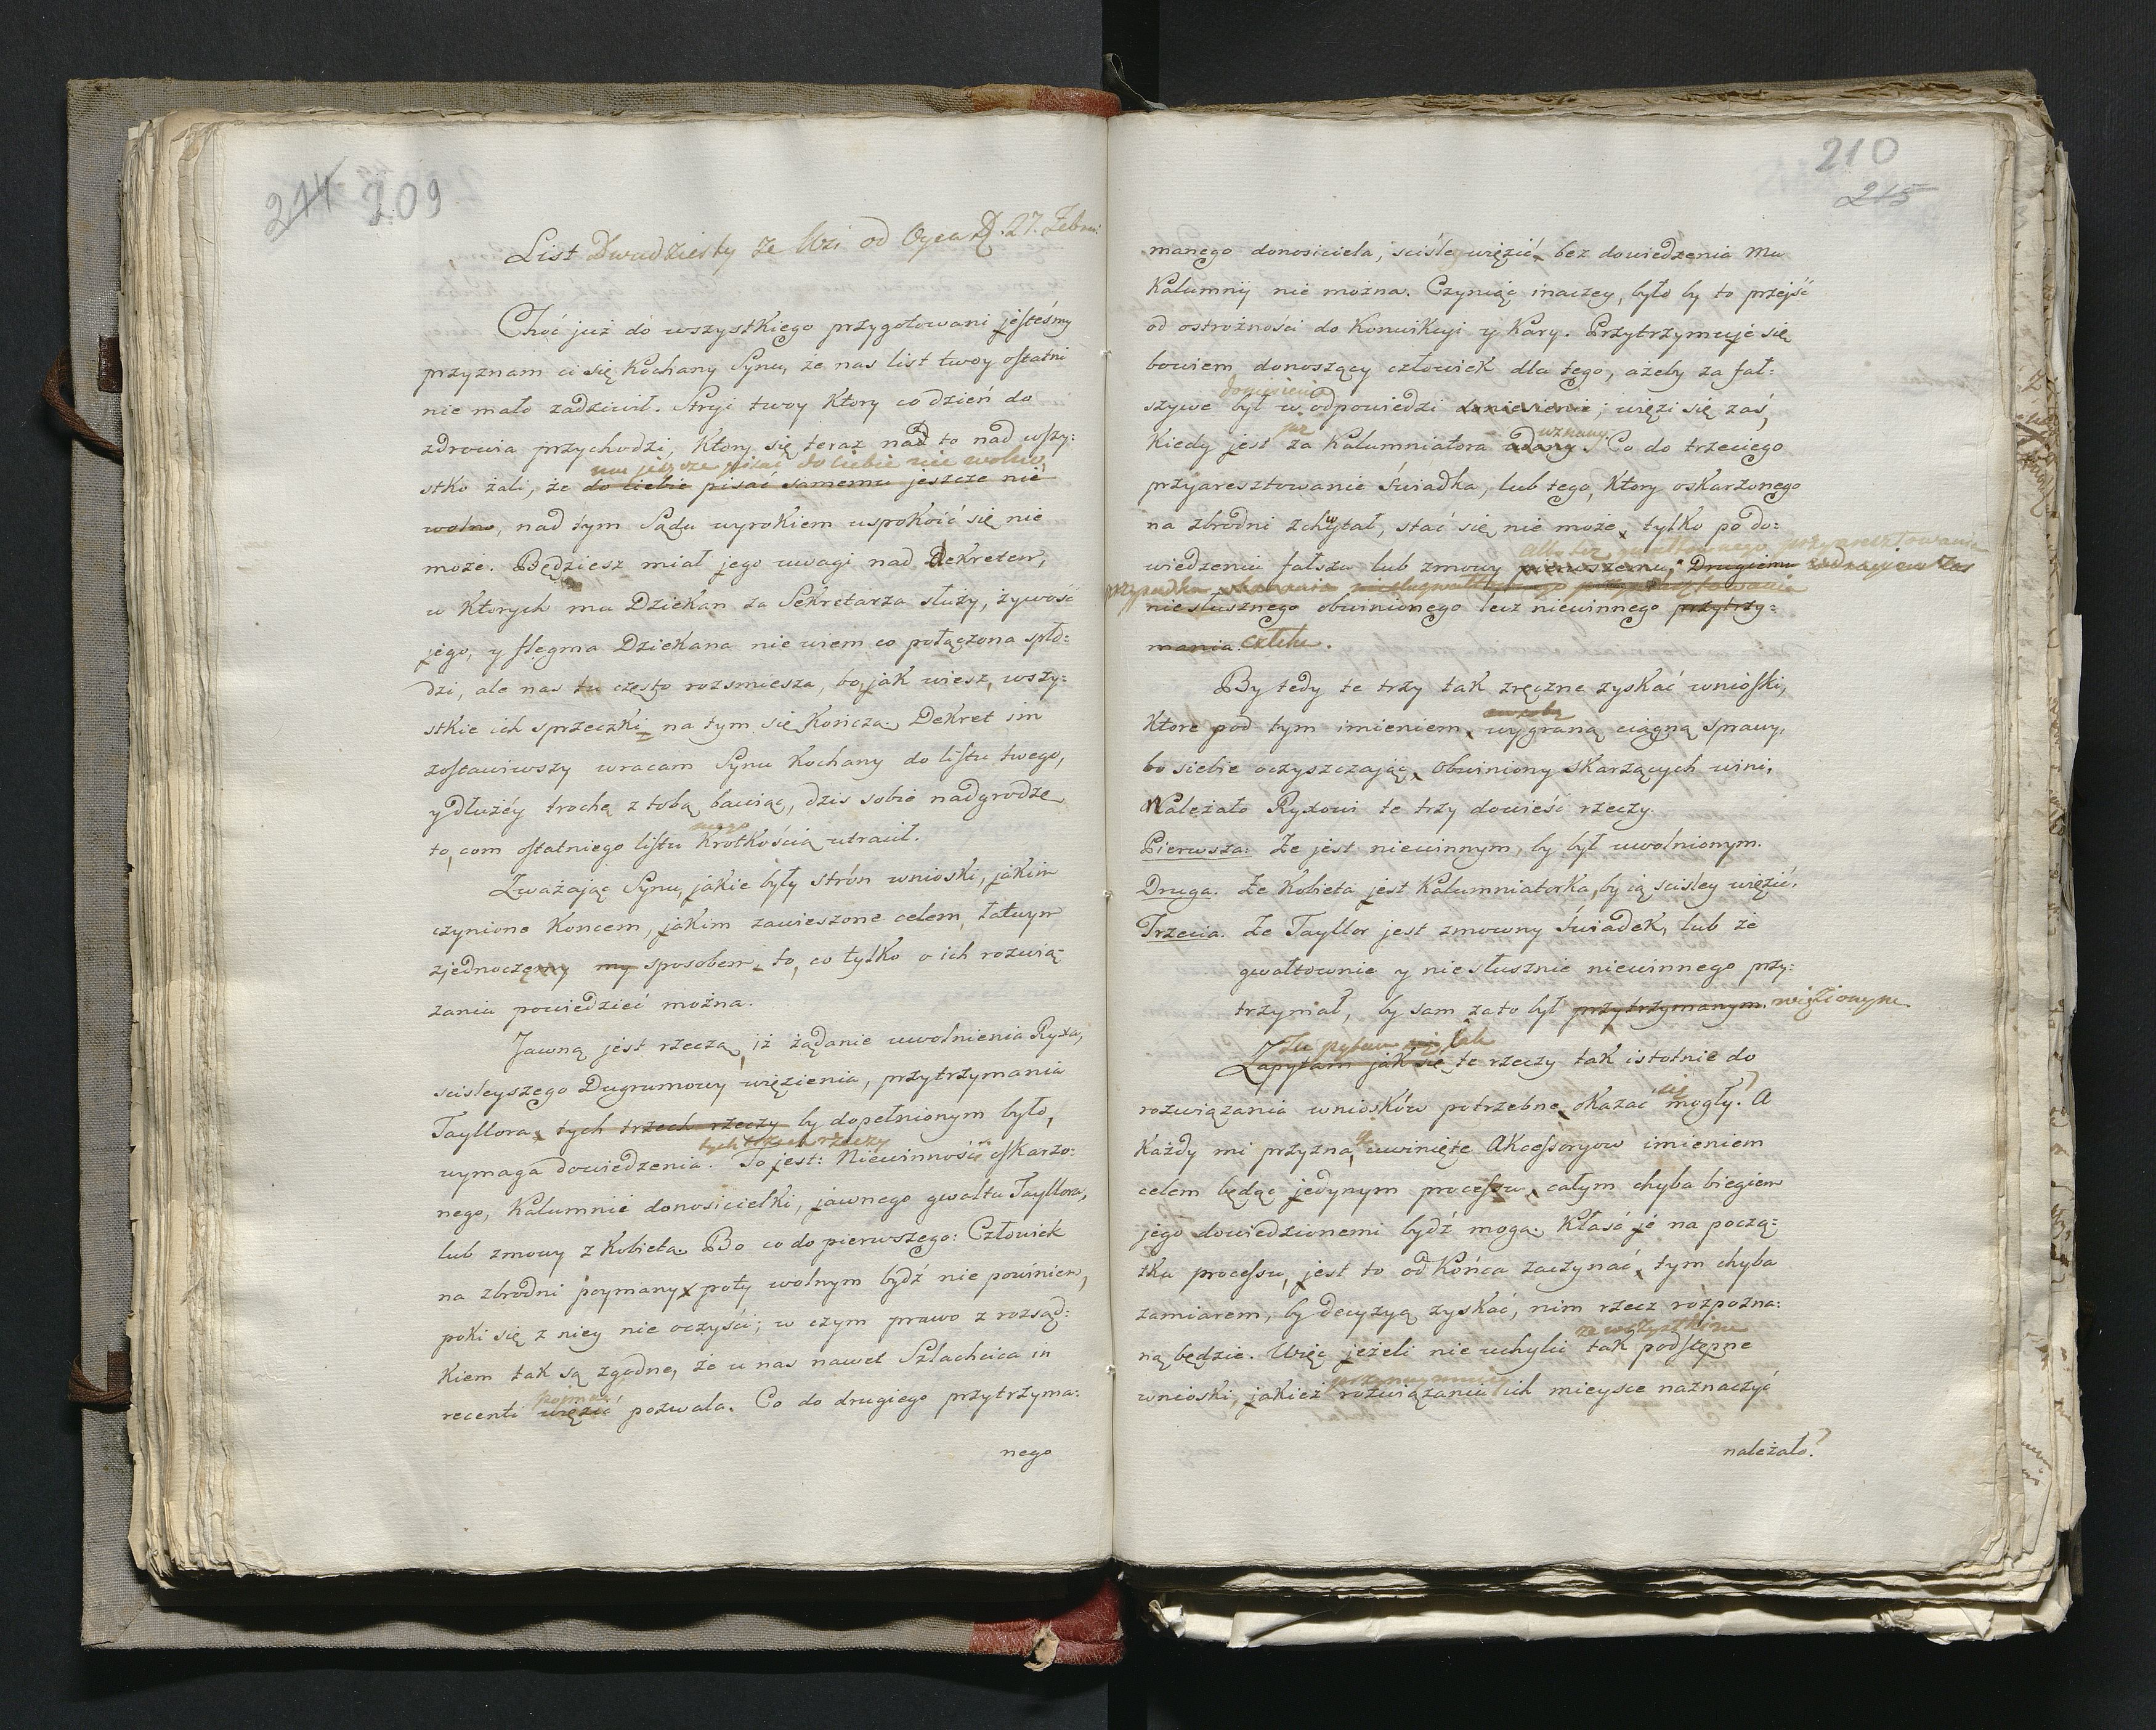 244 209
List Dwudziesty ze Wsi od Oyca D. 27. Febru:
Choć już do wszystkiego przygotowani jesteśmy
przyznam ci się Kochany Synu, że nas list twoy ostatni
nie mało zadziwił. Stryi twoy Ktory co dzień do
zdrowia przychodzi, Ktory się teraz nad to nad wszy:
mu jeszcze pisać do ciebie nie wolno,
stko żali, że do ciebie pisać samemu jeszcze nie
wolno, nad tym Sądu wyrokiem uspokoić się nie
może. Będziesz miał jego uwagi nad Dekretem,
w Ktorych mu Dziekan za Sekretarza służy, żywość
jego, y flegma Dziekana nie wiem co połączona spło:
dzi, ale nas tu często rozśmiesza, bo jak wiesz, wszy:
stkie ich sprzeczki na tym się Kończą. Dekret im
zostawiwszy wracam Synu Kochany do listu twego,
y dłużéy trochę z tobą bawiąc, dziś sobie nadgrodzę
mego
to, com ostatniego listu Krotkością utracił.
Zważając Synu, jakie były strón wnioski, jakim
czynione Koncem, jakim zawieszone celem, łatwym
zjednoczęmy my sposobem to, co tylko o ich rozwią:
zaniu powiedzieć można.
Jawną jest rzeczą, iż żądanie uwolnienia Ryxa,
scisleyszego Dugrumowy więzienia, przytrzymania
Tayllora, tych trzech rzeczy by dopełnionym było,
tych trzech rzeczy
wymaga dowiedzenia. To jest: Niewinności oskarżo:
nego, Kalumnie donosicielki, jawnego gwałtu Tayllora,
lub zmowy z Kobietą. Bo co do pierwszego: Człowiek
na zbrodni poymany, poty wolnym bydź nie powinien,
poki się z niey nie oczyści; w czym prawo z rozsąd:
Kiem tak są zgodne, że u nas nawet Szlachcica in
poimać
recenti więzić pozwala. Co do drugiego przytrzyma:
nego
210
215
manego donosiciela, sciśle więzić bez dowiedzenia mu
Kalumnij nie można. Czyniąc inaczey, było by to przejść
od ostrożności do Konwikcyi y Kary. Przytrzymuje się
bowiem donoszący człowiek dla tego, ażeby za fał:
doniesienie
szywe był w odpowiedzi doniesienie; więzi się zaś,
już uznany
Kiedy jest za Kalumniatora udany. Co do trzeciego
przyaresztowanie świadka, lub tego, Ktory oskarżonego
na zbrodni zchwytał, stać się nie może, tylko po do:
albo bez gwałtownego przyaresztowania
wiedzeniu fałszu lub zmowy pierwszemu, Drugiemu w drugim zas
przypadku
niesłusznego obwinionego lecz niewinnego przytrzy:
mania. człeka.
By tedy te trzy tak zręczne zyskać wnioski,
Ktore pod tym imieniem, wygraną ciągną sprawy,
bo siebie oczyszczając, obwiniony skarżących wini,
Należało Ryxowi te trzy dowieść rzeczy.
Pierwsza: Że jest niewinnym, by był uwolnionym.
Druga. Że Kobieta jest Kalumniatorka, by ią scisley więzić.
Trzecia. Że Tayllor jest zmowny świadek, lub że
gwałtownie y niesłusznie niewinnego przy:
trzymał, by sam za to był przytrzymanym. więzionym
Tu pytam się, jak
Zapytam jak się te rzeczy tak istotnie do
się
rozwiązania wniosków potrzebne, okazać mogły? A
Każdy mi przyzna, że uwinięte Akcessoryow imieniem
celem będąc jedynym processu, całym chyba biegiem
jego dowiedzionemi bydź mogą. Kłaść je na począ:
tku processu, jest to od Końca zaczynać, tym chyba
zamiarem, by decyzyą zyskać, nim rzecz rozpozna:
ze wszystkim
ną będzie. Więc jeżeli nie uchylić tak podstępne
przynaymniey
wnioski, jakież rozwiązaniu ich mieysce naznaczyć
należało?